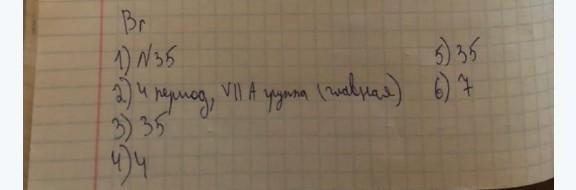 Br
1) N35
2) 4 период, VII A группа (главная)
3) 35
4) 4
5) 35
6) 7